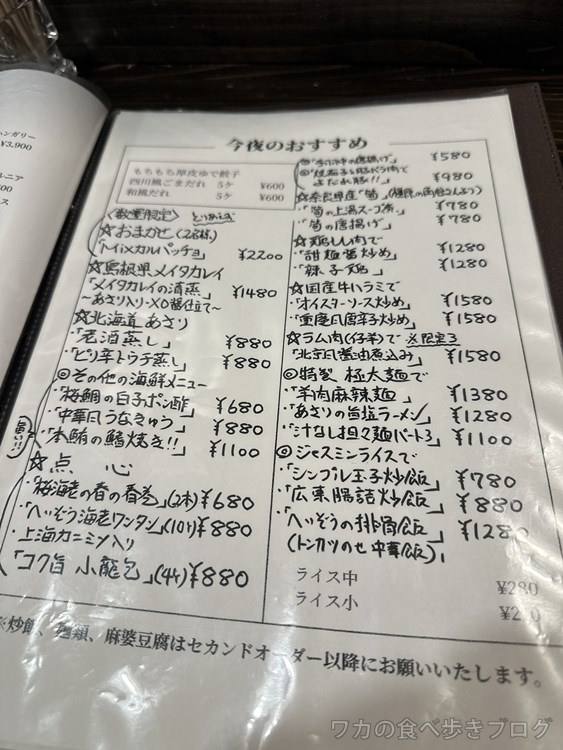 ハンガリー
¥3,900
今夜のおすすめ
もちもち厚皮ゆで餃子
四川風ごまだれ 5ヶ ¥600
和風だれ 5ヶ ¥600
〈数量限定〉 とりあえず
☆おまかせ(2名様)
「Mixカルパッチョ」 ¥2200
☆島根県メイタカレイ
「メイタカレイの清蒸」 ¥1480
〜あさり入り・XO醤仕立て〜
☆北海道あさり
・「老酒蒸し」 ¥880
・「ピリ辛トウチ蒸し」 ¥880
◎その他の海鮮メニュー
・「桜鯛の白子ポン酢」 ¥680
・「中華風うなきゅう」 ¥880
・「本鮪の鰭焼き!!」 ¥1100
旨い!!
☆点 心
・「桜海老の春の春巻」(2本) ¥680
・「へいぞう海老ワンタン」(10ヶ) ¥880
・上海カニミソ入り
「コク旨 小龍包」(4ヶ) ¥880
の唐揚げ」 ¥580
よだれ豚!!」 ¥980
☆奈良県産「筍」
・「筍の上湯スープ煮」 ¥780
・「筍の唐揚げ」 ¥780
☆鶏もも肉で
・「甜麺醤炒め」 ¥1280
・「辣子鶏」 ¥1280
☆国産牛ハラミで
・「オイスターソース炒め」 ¥1580
・「重慶風唐辛子炒め」 ¥1580
☆ラム肉(仔羊)で ※限定3
・「北京風醤油煮込み」 ¥1580
◎特製 極太麺で
・「羊肉麻辣麺」 ¥1380
・「あさりの旨塩ラーメン」 ¥1280
・「汁なし担々麺パート3」 ¥1100
◎ジャスミンライスで
・「シンプル玉子炒飯」 ¥780
・「広東腸詰炒飯」 ¥880
・「へいぞうの排骨飯」 ¥1280
(トンカツのせ中華飯)
ライス中 ¥280
ライス小
※炒飯、麺類、麻婆豆腐はセカンドオーダー以降にお願いいたします。
ワカの食べ歩きブログ